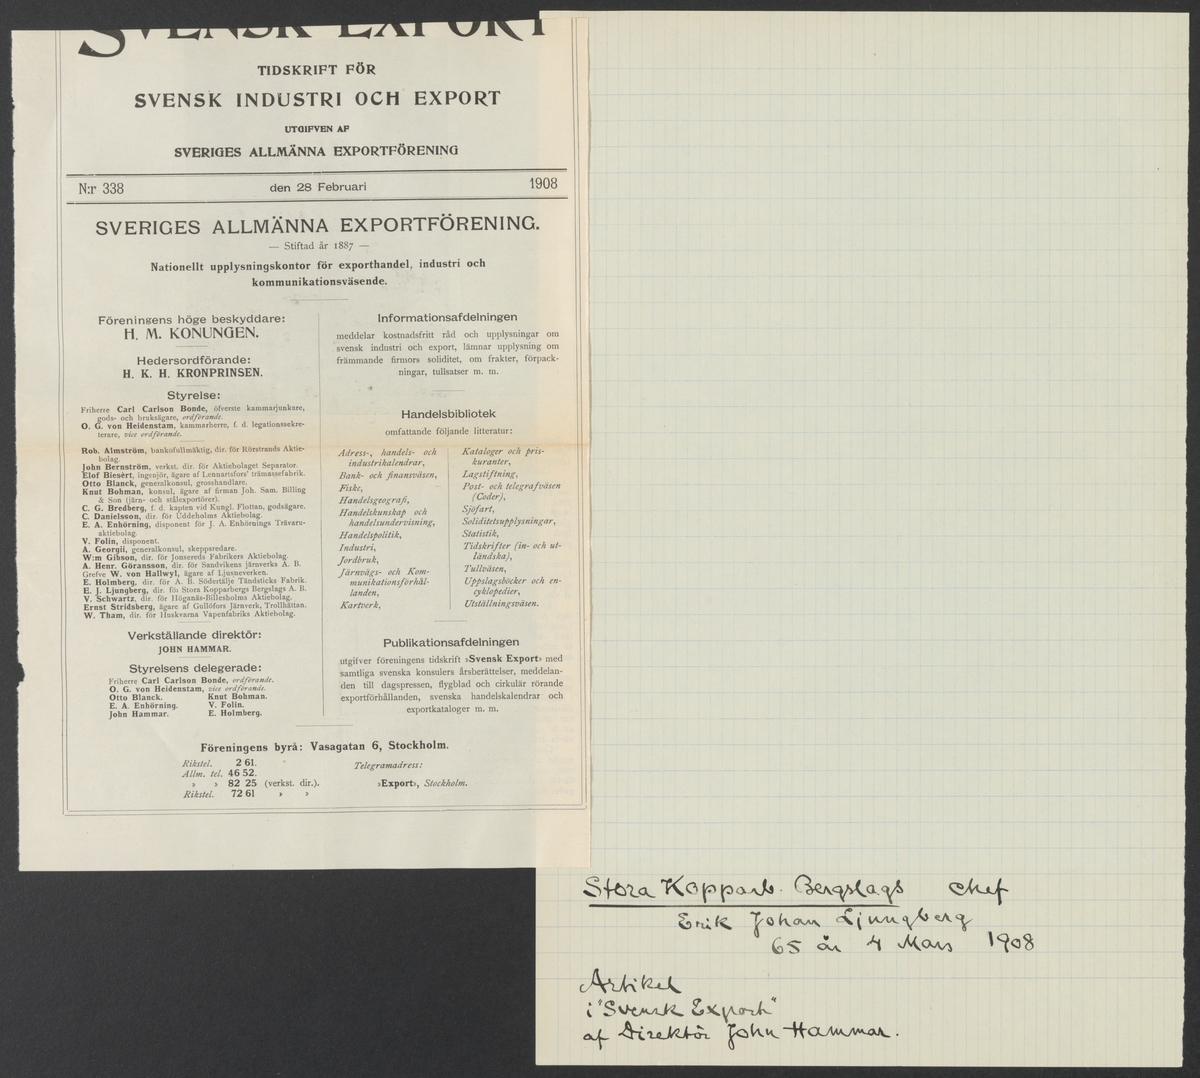 SVENSK EXPORT
TIDSKRIFT FÖR
SVENSK INDUSTRI OCH EXPORT
UTGIFVEN AF
SVERIGES ALLMÄNNA EXPORTFÖRENING
N:r 338 den 28 Februari 1908
SVERIGES ALLMÄNNA EXPORTFÖRENING.
— Stiftad år 1887 —
Nationellt upplysningskontor för exporthandel, industri och
kommunikationsväsende.
Föreningens höge beskyddare:
H. M. KONUNGEN.
Hedersordförande:
H. K. H. KRONPRINSEN.
Styrelse:
Friherre Carl Carlson Bonde, öfverste kammarjunkare,
gods- och bruksägare, ordförande.
O. G. von Heidenstam, kammarherre, f. d. legationssekre-
terare, vice ordförande.
Rob. Almström, bankofullmäktig, dir. för Rörstrands Aktie-
bolag.
John Bernström, verkst. dir. för Aktiebolaget Separator.
Elof Biesèrt, ingenjör, ägare af Lennartsfors' trämassefabrik.
Otto Blanck, generalkonsul, grosshandlare.
Knut Bohman, konsul, ägare af firman Joh. Sam. Billing
& Son (järn- och stålexportörer).
C. G. Bredberg, f. d. kapten vid Kungl. Flottan, godsägare.
C. Danielsson, dir. för Uddeholms Aktiebolag.
E. A. Enhörning, disponent för J. A. Enhörnings Trävaru-
aktiebolag.
V. Folin, disponent.
A. Georgii, generalkonsul, skeppsredare.
W:m Gibson, dir. för Jonsereds Fabrikers Aktiebolag.
A. Henr. Göransson, dir. för Sandvikens järnverks A. B.
Grefve W. von Hallwyl, ägare af Ljusneverken.
E. Holmberg, dir. för A. B. Södertälje Tändsticks Fabrik.
E. J. Ljungberg, dir. för Stora Kopparbergs Bergslags A. B.
V. Schwartz, dir. för Höganäs-Billesholms Aktiebolag.
Ernst Stridsberg, ägare af Gullöfors Järnverk, Trollhättan.
W. Tham, dir. för Huskvarna Vapenfabriks Aktiebolag.
Verkställande direktör:
JOHN HAMMAR.
Styrelsens delegerade:
Friherre Carl Carlson Bonde, ordförande.
O. G. von Heidenstam, vice ordförande.
Otto Blanck. Knut Bohman.
E. A. Enhörning. V. Folin.
John Hammar. E. Holmberg.
Informationsafdelningen
meddelar kostnadsfritt råd och upplysningar om
svensk industri och export, lämnar upplysning om
främmande firmors soliditet, om frakter, förpack-
ningar, tullsatser m. m.
Handelsbibliotek
omfattande följande litteratur:
Adress-, handels- och
industrikalendrar,
Bank- och finansväsen,
Fiske,
Handelsgeografi,
Handelskunskap och
handelsundervisning,
Handelspolitik,
Industri,
Jordbruk,
Järnvägs- och Kom-
munikationsförhål-
landen,
Kartverk,
Kataloger och pris-
kuranter,
Lagstiftning,
Post- och telegrafväsen
(Coder),
Sjöfart,
Soliditetsupplysningar,
Statistik,
Tidskrifter (in- och ut-
ländska),
Tullväsen,
Uppslagsböcker och en-
cyklopedier,
Utställningsväsen.
Publikationsafdelningen
utgifver föreningens tidskrift »Svensk Export» med
samtliga svenska konsulers årsberättelser, meddelan-
den till dagspressen, flygblad och cirkulär rörande
exportförhållanden, svenska handelskalendrar och
exportkataloger m. m.
Föreningens byrå: Vasagatan 6, Stockholm.
Rikstel. 2 61.
Allm. tel. 46 52.
» » 82 25 (verkst. dir.).
Rikstel. 72 61 » »
Telegramadress:
»Export», Stockholm.
Stora Kopparb. Bergslags chef
Erik Johan Ljungberg
65 år 4 Mars 1908
Artikel
i "Svensk Export"
af Direktör John Hammar.